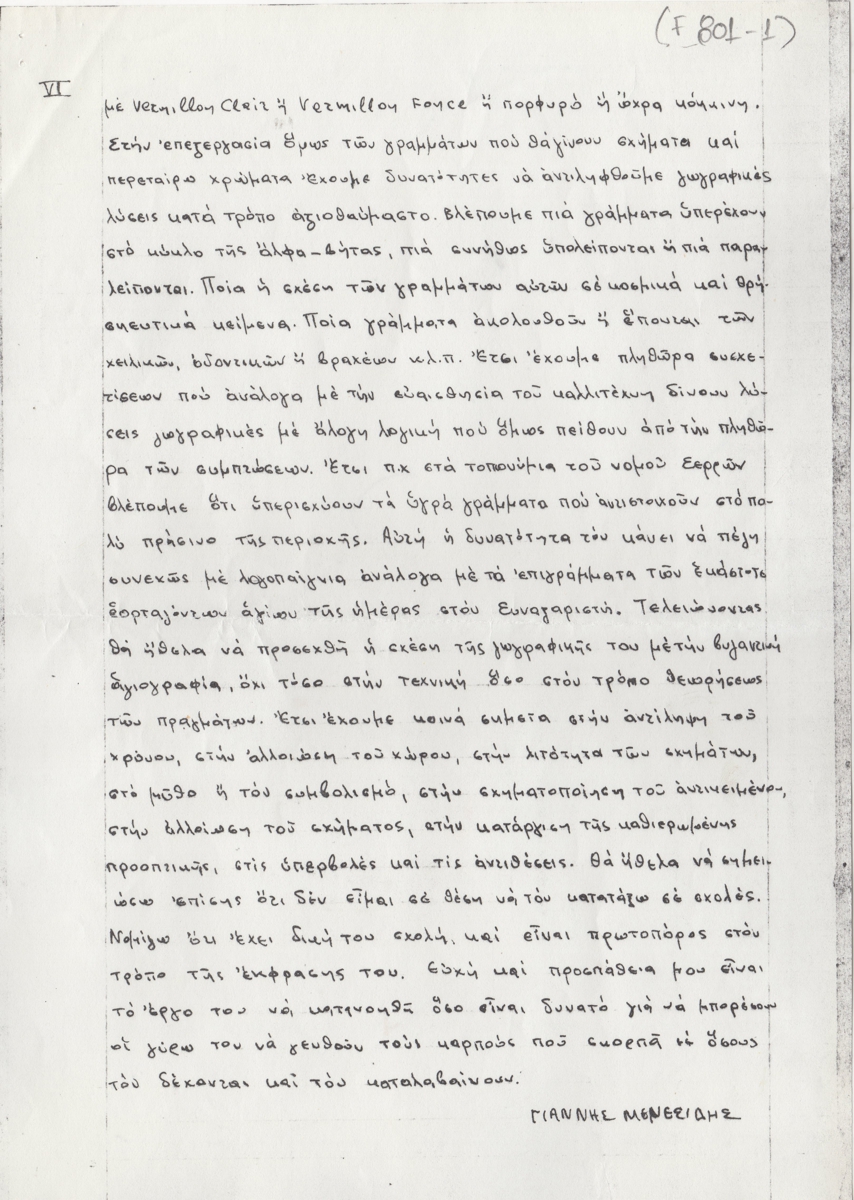 (F 801-1)
VI
μέ Vermillon Clair ἤ Vermillon Fonce ἤ πορφυρό ἤ ὤχρα κόκκινη.
Στήν ἐπεξεργασία ὅμως τῶν γραμμάτων πού θά γίνουν σχήματα καί
περεταίρω χρώματα ἔχουμε δυνατότητες νά ἀντιληφθοῦμε ζωγραφικές
λύσεις κατά τρόπο ἀξιοθαύμαστο. Βλέπουμε πιά γράμματα ὑπερέχουν
στό κύκλο τῆς ἄλφα-βήτας, πιά συνήθως ὑπολείπονται ἤ πιά παρα-
λείπονται. Ποία ἡ σχέση τῶν γραμμάτων αὐτῶν σέ κοσμικά καί θρη-
σκευτικά κείμενα. Ποία γράμματα ἀκολουθοῦν ἤ ἕπονται τῶν
χειλικῶν, ὀδοντικῶν ἤ βραχέων κ.λ.π. Ἔτσι ἔχουμε πληθώρα συσχε-
τίσεων πού ἀνάλογα μέ τήν εὐαισθησία τοῦ καλλιτέχνη δίνουν λύ-
σεις ζωγραφικές μέ ἄλογη λογική πού ὅμως πείθουν ἀπό τήν πληθώ-
ρα τῶν συμπτώσεων. Ἔτσι π.χ στά τοπούμια τοῦ νομοῦ Σερρῶν
βλέπουμε ὅτι ὑπερισχύουν τά ὑγρά γράμματα πού ἀντιστοιχοῦν στό πο-
λύ πράσινο τῆς περιοχῆς. Αὐτή ἡ δυνατότητα τόν κάνει νά παίζη
συνεχῶς μέ λογοπαίγνια ἀνάλογα μέ τά ἐπιγράμματα τῶν ἑκάστοτε
ἑορταζόντων ἁγίων τῆς ἡμέρας στόν Συναξαριστή. Τελειώνοντας
θά ἤθελα νά προσεχθῆ ἡ σχέση τῆς ζωγραφικῆς του μέ τήν βυζαντινή
ἁγιογραφία, ὄχι τόσο στήν τεχνική ὅσο στόν τρόπο θεωρήσεως
τῶν πραγμάτων. Ἔτσι ἔχουμε κοινά σημεῖα στήν ἀντίληψη τοῦ
χρόνου, στήν ἀλλοίωση τοῦ χώρου, στήν λιτότητα τῶν σχημάτων,
στό μῦθο ἤ τόν συμβολισμό, στήν σχηματοποίηση τοῦ ἀντικειμένου,
στήν ἀλλοίωση τοῦ σχήματος, στήν κατάργιση τῆς καθιερωμένης
προοπτικῆς, στίς ὑπερβολές καί τίς ἀντιθέσεις. Θά ἤθελα νά σημει-
ώσω ἐπίσης ὅτι δέν εἶμαι σέ θέση νά τόν κατατάξω σέ σχολές.
Νομίζω ὅτι ἔχει δική του σχολή, καί εἶναι πρωτοπόρος στόν
τρόπο τῆς ἔκφρασης του. Εὐχή καί προσπάθεια μου εἶναι
τό ἔργο του νά κατανοηθῆ ὅσο εἶναι δυνατό γιά νά μπορέσουν
οἱ γύρω του νά γευθοῦν τούς καρπούς πού σκορπᾶ σέ ὅσους
τόν δέχονται καί τόν καταλαβαίνουν.
ΓΙΑΝΝΗΣ ΜΕΝΕΣΙΔΗΣ